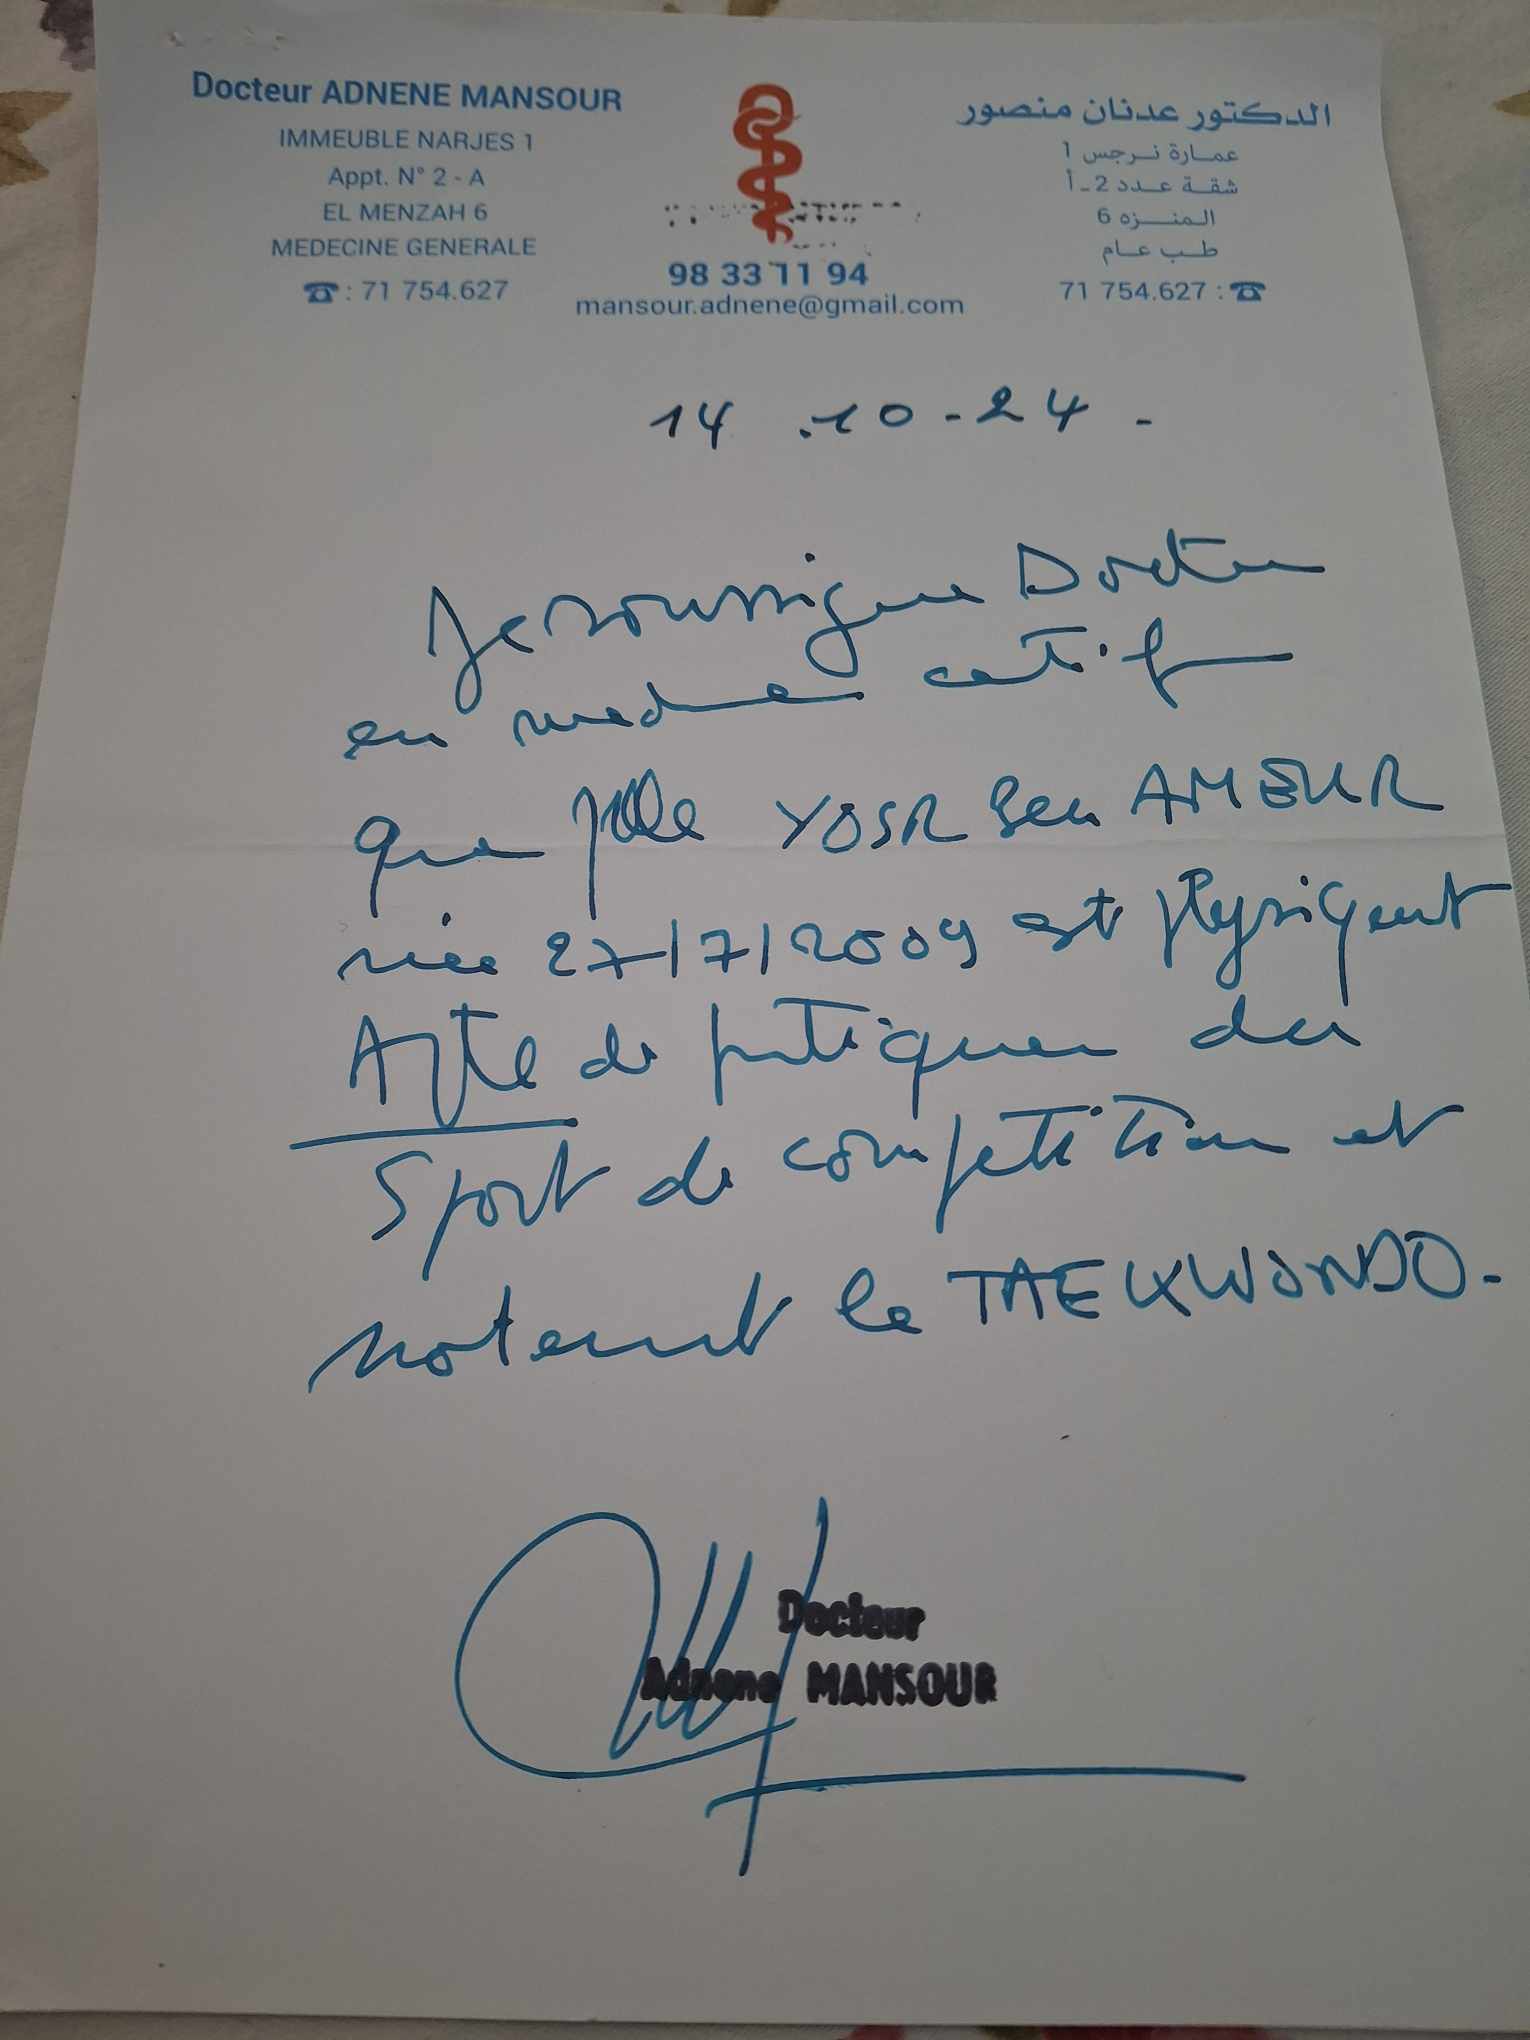 Docteur ADNENE MANSOUR
IMMEUBLE NARJES 1
Appt. N° 2 - A
EL MENZAH 6
MEDECINE GENERALE
☎ : 71 754.627
98 33 11 94
mansour.adnene@gmail.com
الدكتور عدنان منصور
عمارة نرجس 1
شقة عدد 2 - أ
المنزه 6
طب عام
71 754.627 : ☎
14 .10 - 24 -
Je soussigne Docteur
en medecine certifie
que Mlle YOSR Ben AMEUR
née 27/7/2009 est physiquent
Apte de pratiquer du
Sport de competition et
notemt le TAEKWONDO -
Docteur
Adnene MANSOUR